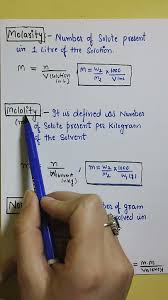 Molarity :- Number of Solute present
in 1 Litre of the Solution.
M = n / V(Solution (in L)) , M = w₂ / M₂ × 1000 / V (mL)
Molality :- It is defined as Number
of Solute present per Kilogram
of the Solvent
n / W(solvent (in kg)) , m = w₂ / M₂ × 1000 / W₁(g)
No of gram
dissolved in
= M.M / Valency